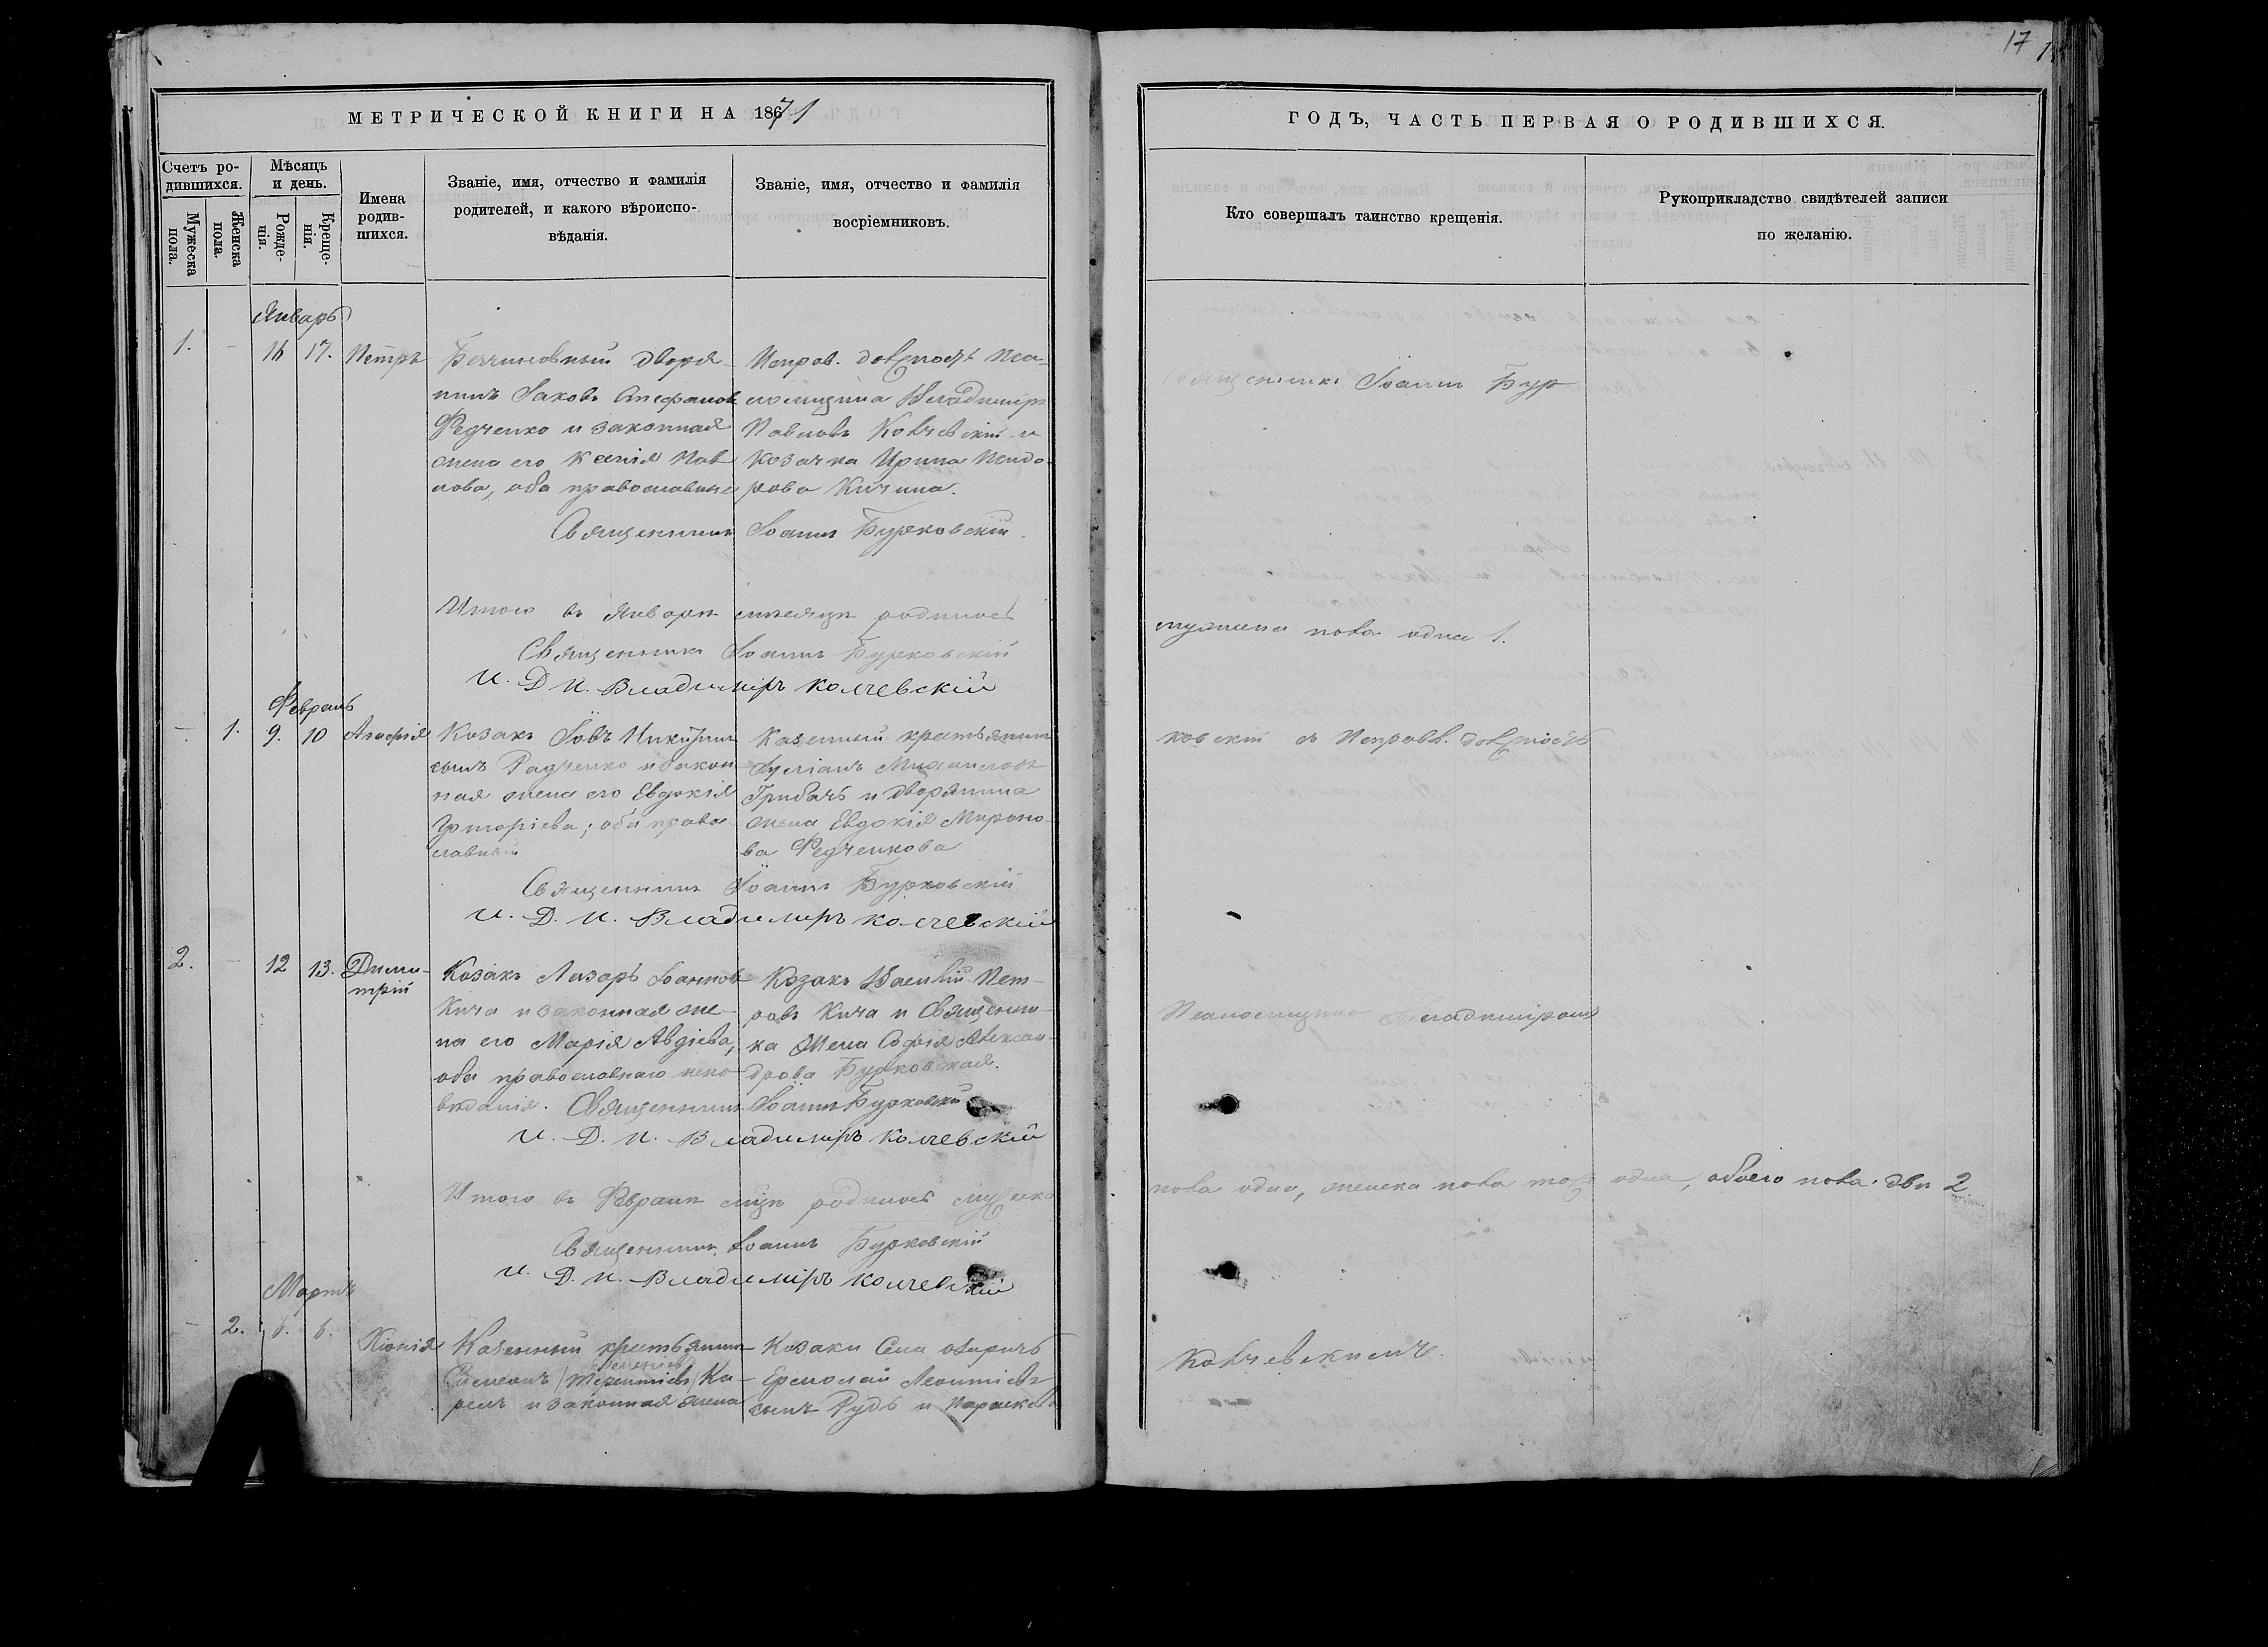 17
МЕТРИЧЕСКОЙ КНИГИ НА 1871
ГОДЪ, ЧАСТЬ ПЕРВАЯ О РОДИВШИХСЯ.
Счетъ ро-
дившихся.
Мужеска
пола.
Женска
пола.
Мѣсяцъ
и день.
Рожде-
нія.
Креще-
нія.
Имена
родив-
шихся.
Званіе, имя, отчество и фамилія
родителей, и какого вѣроиспо-
вѣданія.
Званіе, имя, отчество и фамилія
восріемниковъ.
Кто совершалъ таинство крещенія.
Рукоприкладство свидѣтелей записи
по желанію.
Январь
1. - 16 17. Петръ
Безчиновный дворя-
нинъ Іаковъ Стефановъ
Федченко и законная
жена его Ксенія Пав-
лова, оба православные
Исправ. должность Пса-
ломщика Владиміръ
Павловъ Колчевскій и
Козачка Ирина Исидо-
рова Кичина.
Священникъ Іоаннъ Бурковскій.
Священникъ Іоаннъ Бур
Итого въ Январѣ мѣсяцѣ родилось
мужеска пола одна 1.
Священникъ Іоаннъ Бурковскій
И. Д. П. Владиміръ Колчевскій
Февраль
- 1. 9. 10 Агафія
Козакъ Іовъ Никитинъ
сынъ Радченко и закон
ная жена его Евдокія
Григоріева; оба право-
славные
Казенный крестьянинъ
Іуліанъ Михаиловъ
Грибачъ и дворянина
жена Евдокія Мироно-
ва Федченкова
ковскій съ Исправл. должность
Священникъ Іоаннъ Бурковскій
И. Д. П. Владиміръ Колчевскій
2. - 12 13. Дими-
трій
Козакъ Лазарь Іоанновъ
Кича и законная же-
на его Марія Авдіева,
оба православнаго испо-
вѣданія. Священникъ Іоаннъ Бурковскій
Козакъ Василій Пет-
ровъ Кича и Священни-
ка Жена Софія Алексан-
дрова Бурковская.
Псаломщика Владиміромъ
И. Д. П. Владиміръ Колчевскій
Итого въ Февралѣ мцѣ родилось мужеска
пола одно, женска пола тожъ одна, обоего пола двѣ 2
Священникъ Іоаннъ Бурковскій
И. Д. П. Владиміръ Колчевскій
Мартъ
- 2. 6. 6. Хіонія
Казенный крестьянинъ
Терентіевъ Ка-
и законная жена
Козаки Села
Ермолай Леонтіевъ
сынъ Рудь и Параскева
Колчевскимъ.